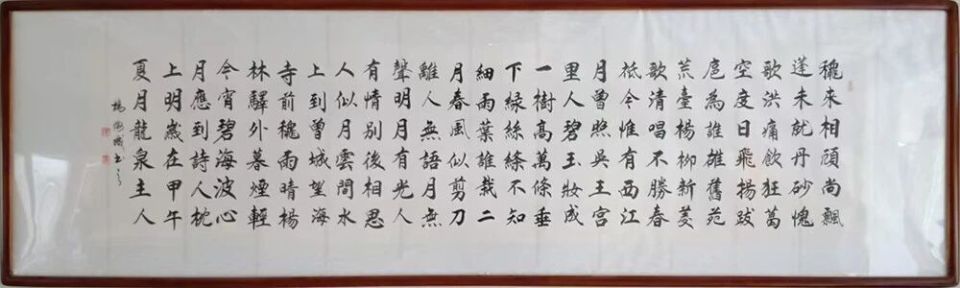 穐來相顧尚飄
蓬未就丹砂愧
歌洪痛飲狂葛
空度日飛揚跋
扈為誰雄舊苑
荒臺楊柳新菱
歌清唱不勝春
祗今惟有西江
月曾照吳王宮
里人碧玉妝成
一樹高萬條垂
下緑絲絛不知
細雨葉雄裁二
月春風似剪刀
離人無語月無
聲明月有光人
有情別後相思
人似月雲間水
上到曾城望海
寺前穐雨晴楊
林驛外暮煙輕
今宵碧海波心
月應到詩人枕
上明歲在甲午
夏月龍泉主人
楊